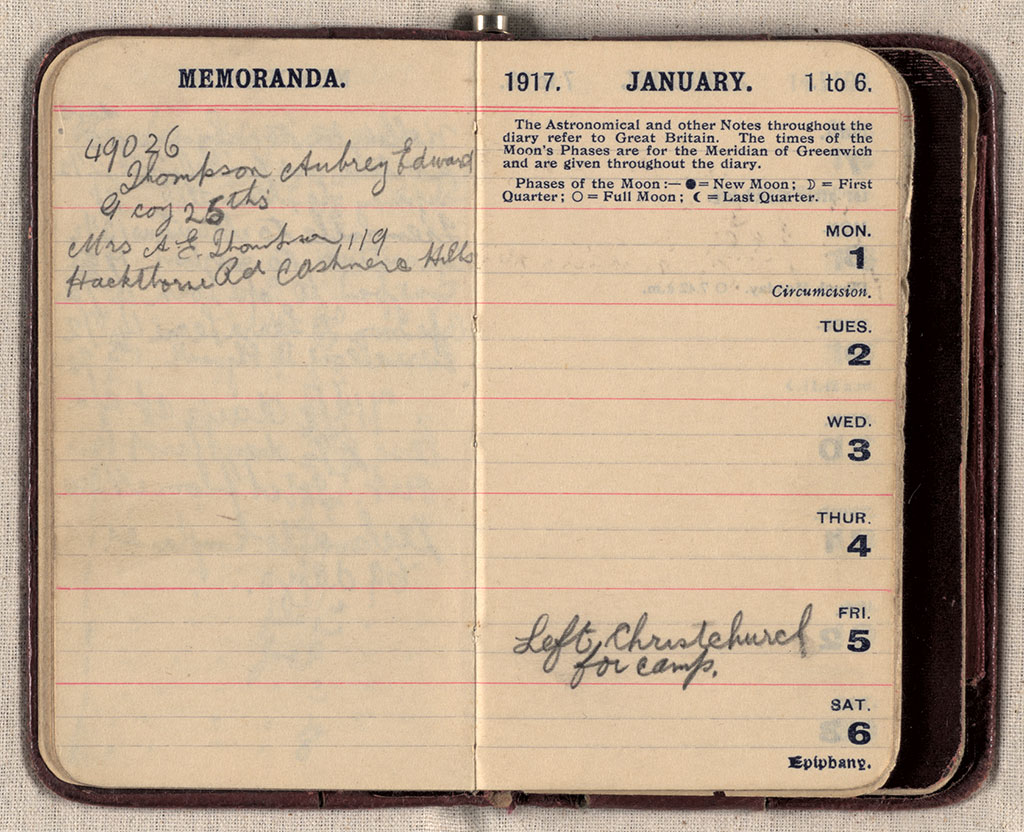 MEMORANDA.
49026
Thompson Aubrey Edward
9 coy 25ths
Mrs A. E. Thompson 119
Hackthorne Rd Cashmere Hills
1917. JANUARY. 1 to 6.
The Astronomical and other Notes throughout the
diary refer to Great Britain. The times of the
Moon's Phases are for the Meridian of Greenwich
and are given throughout the diary.
Phases of the Moon:—●=New Moon; ☽=First
Quarter; ○=Full Moon; ☾=Last Quarter.
MON.
1
Circumcision.
TUES.
2
WED.
3
THUR.
4
FRI.
5
Left Christchurch
for camp.
SAT.
6
Epiphany.